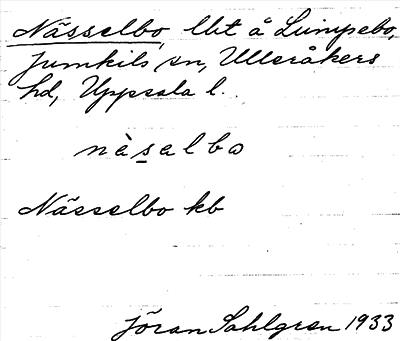 Nässelbo, lht å Lumpebo,
Jumkils sn, Ulleråkers
hd, Uppsala l.
nàsalbo
Nässelbo kb
Jöran Sahlgren 1933